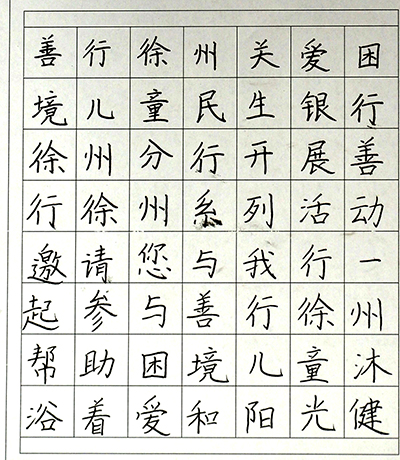 善行徐州关爱困
境儿童民生银行
徐州分行开展善
行徐州系列活动
邀请您与我行一
起参与善行徐州
帮助困境儿童沐
浴着爱和阳光健